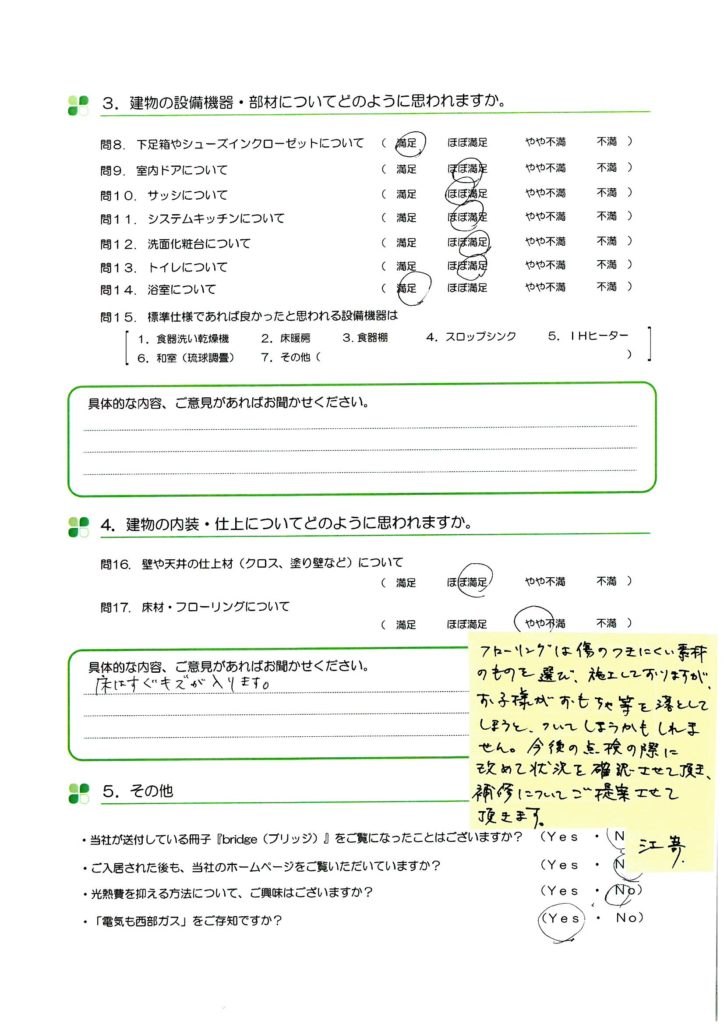 3．建物の設備機器・部材についてどのように思われますか。
問8．下足箱やシューズインクローゼットについて （ 満足 ほぼ満足 やや不満 不満 ）
問9．室内ドアについて （ 満足 ほぼ満足 やや不満 不満 ）
問10．サッシについて （ 満足 ほぼ満足 やや不満 不満 ）
問11．システムキッチンについて （ 満足 ほぼ満足 やや不満 不満 ）
問12．洗面化粧台について （ 満足 ほぼ満足 やや不満 不満 ）
問13．トイレについて （ 満足 ほぼ満足 やや不満 不満 ）
問14．浴室について （ 満足 ほぼ満足 やや不満 不満 ）
問15．標準仕様であれば良かったと思われる設備機器は
1．食器洗い乾燥機 2．床暖房 3.食器棚 4．スロップシンク 5．IHヒーター
6．和室（琉球調畳） 7．その他（ ）
具体的な内容、ご意見があればお聞かせください。
4．建物の内装・仕上についてどのように思われますか。
問16．壁や天井の仕上材（クロス、塗り壁など）について
（ 満足 ほぼ満足 やや不満 不満 ）
問17．床材・フローリングについて
（ 満足 ほぼ満足 やや不満 不満 ）
具体的な内容、ご意見があればお聞かせください。
床はすぐキズが入ります。
フローリングは傷のつきにくい素材
のものを選び、施工しておりますが、
お子様がおもちゃ等を落として
しまうと、ついてしまうかもしれま
せん。今後の点検の際に
改めて状況を確認させて頂き、
補修についてご提案させて
頂きます。
江嵜
5．その他
・当社が送付している冊子『bridge（ブリッジ）』をご覧になったことはございますか？ （Yes ・ N
・ご入居された後も、当社のホームページをご覧いただいていますか？ （Yes ・ N
・光熱費を抑える方法について、ご興味はございますか？ （Yes ・ No）
・「電気も西部ガス」をご存知ですか？ （Yes ・ No）